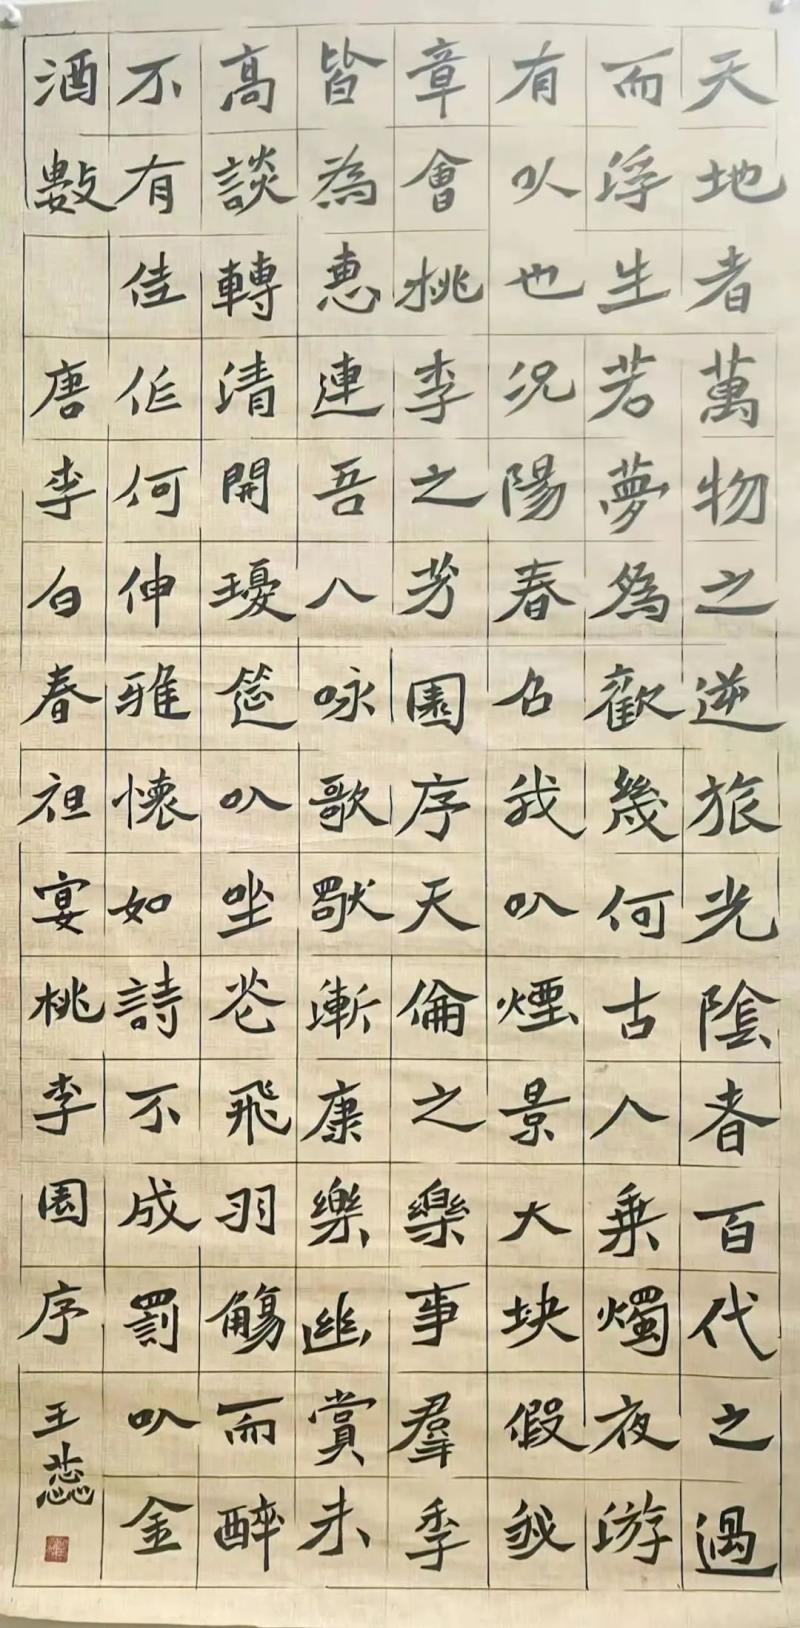 天地者萬物之逆旅光陰者百代之過
而浮生若夢爲歡幾何古人乗燭夜游
有以也况陽春召我以煙景大块假我
章會桃李之芳園序天倫之樂事羣季
皆為惠連吾人咏歌獨漸康樂幽賞未
高談轉清開瓊筵以坐花飛羽觴而醉
不有佳作何伸雅懷如詩不成罰以金
酒數 唐李白春祖宴桃李園序
王蕊